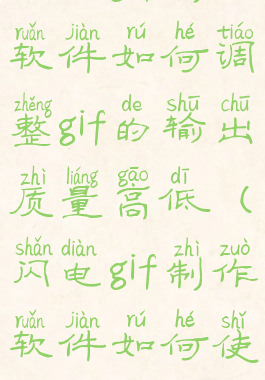 ruǎn jiàn rú hé tiáo
软件如何调
zhěng de shū chū
整gif的输出
zhì liáng gāo dī
质量高低（
shǎn diàn zhì zuò
闪电gif制作
ruǎn jiàn rú hé shǐ
软件如何使